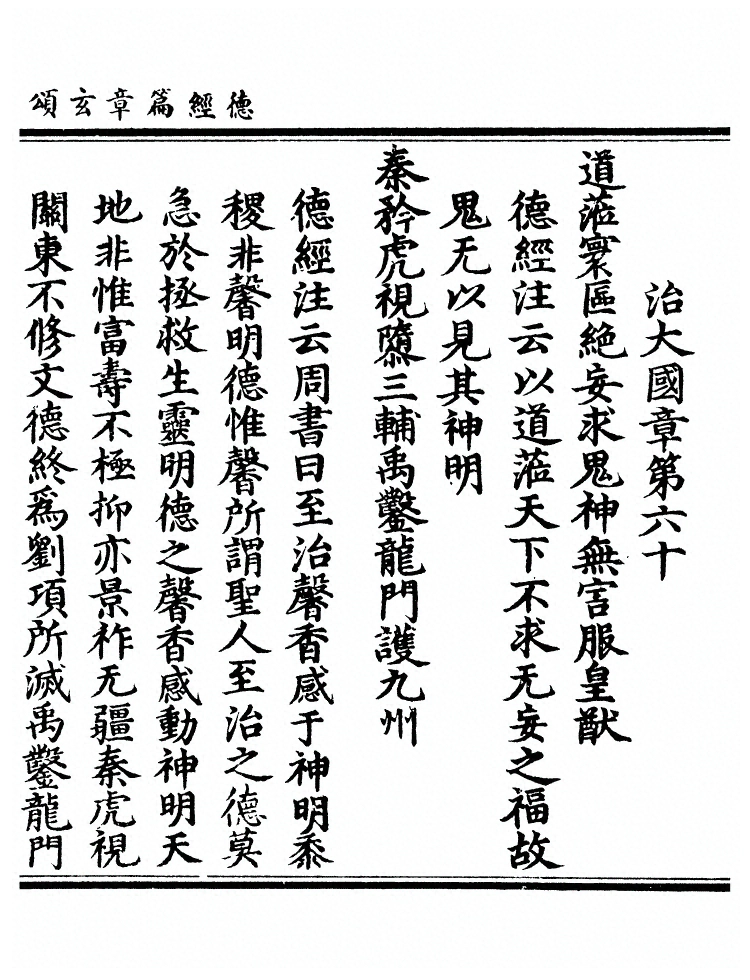 德經篇章玄頌
治大國章第六十
道蒞寰區絶妄求鬼神無害服皇猷
德經注云以道蒞天下不求无妄之福故
鬼无以見其神明
秦矜虎視隳三輔禹鑿龍門護九州
德經注云周書曰至治馨香感于神明黍
稷非馨明德惟馨所謂聖人至治之德莫
急於拯救生靈明德之馨香感動神明天
地非惟富壽不極抑亦景祚无疆秦虎視
關東不修文德終爲劉項所滅禹鑿龍門